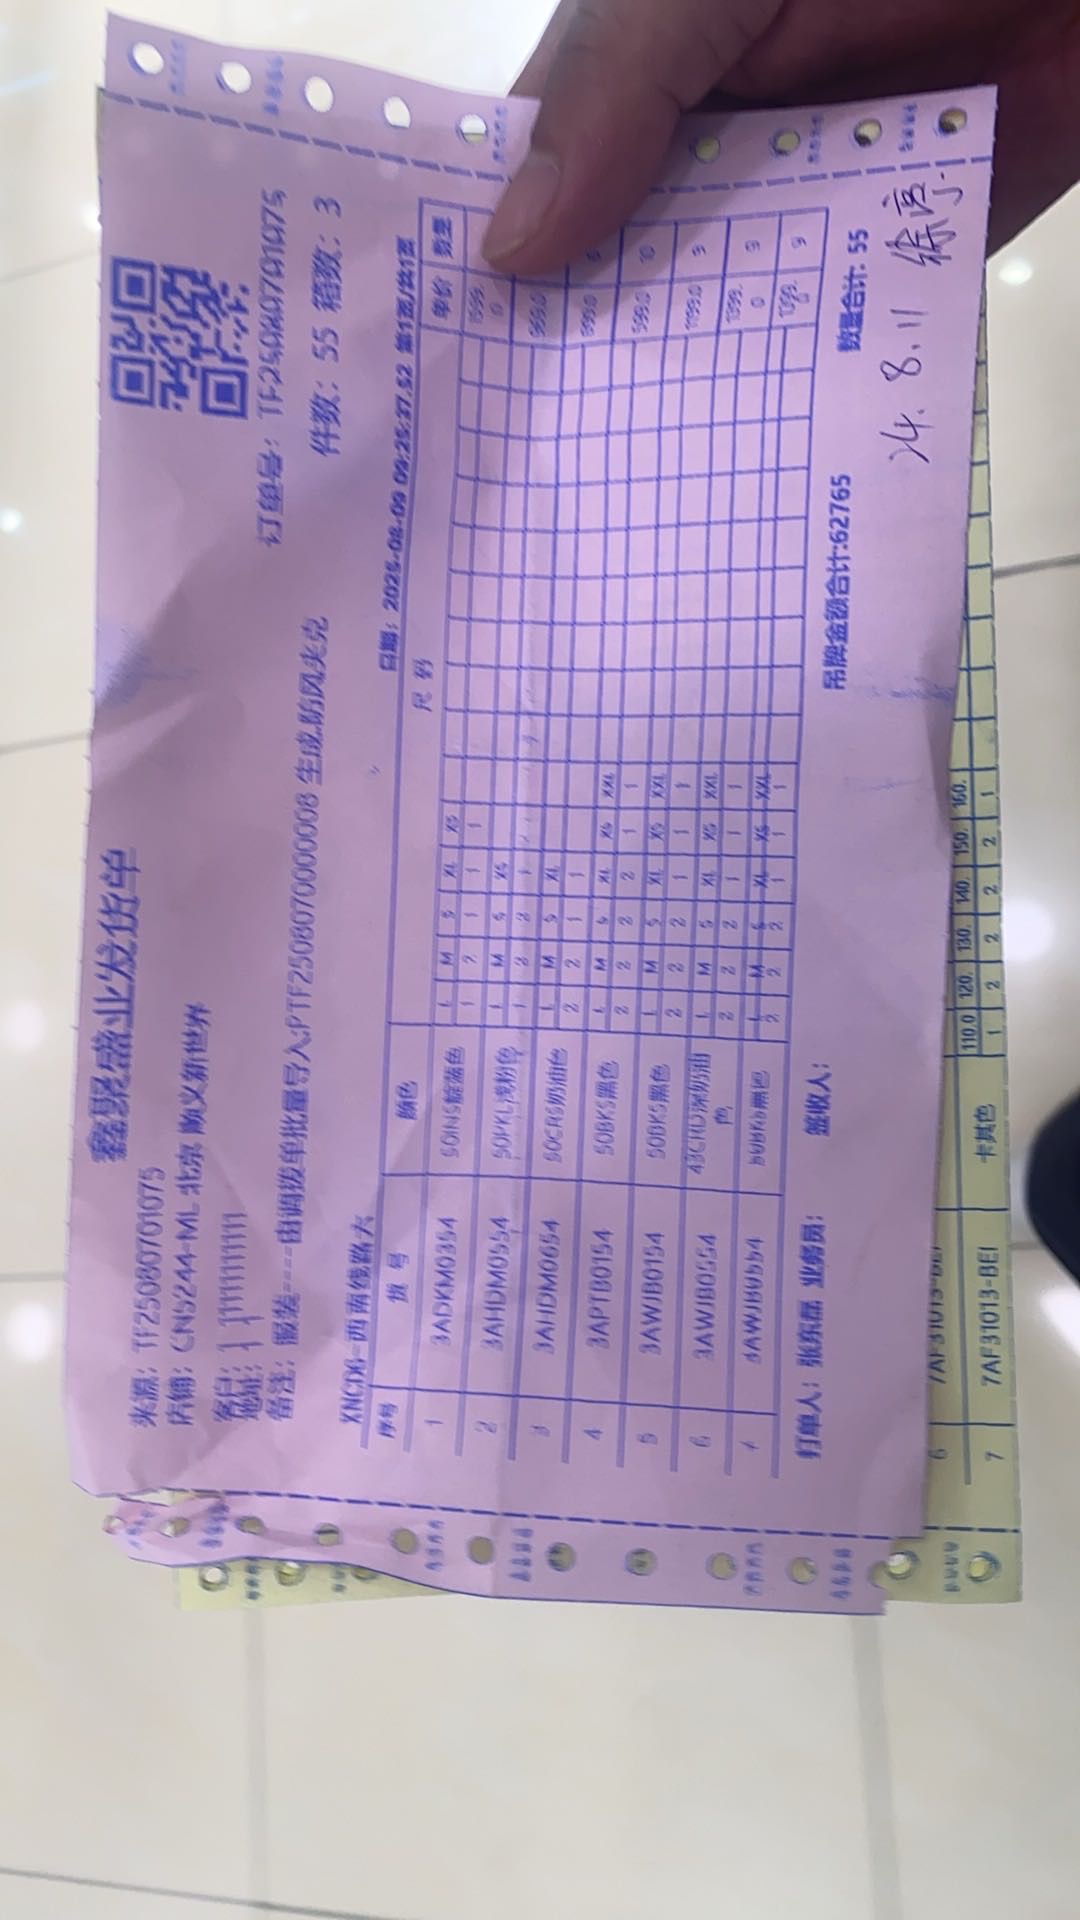 鑫聚盛业发货单
来源: TF25080701075
店铺: CN5244-ML 北京 顺义新世界
客户:
地址:
订单号: TF25080701075
备注: 服装----由调拨单批量导入,PTF2508070000008 生成,防风夹克
件数: 55 箱数: 3
XNCD6-西南线路六
日期: 2025-08-09 09:25:37.52 第1页/共1页
序号 货号 颜色 尺码 单价 数量
L M S XL XS
1 3ADKM0354 50IN5靛蓝色 1 2 1 1 1 1599.0
L M S XS
2 3AHDM0554 50PKL浅粉色 1 2 2 1
L M S XL
3 3AHDM0654 50CR5奶油色 2 2 1 1 999.0
L M S XL XS XXL
4 3APTB0154 50BK5黑色 2 2 2 2 1 1 599.0 10
L M S XL XS XXL
5 3AWJB0154 50BK5黑色 2 2 2 1 1 1 1199.0 9
L M S XL XS XXL
6 3AWJB0554 43CRD深奶油色 2 2 2 1 1 1 1399.0 9
L M S XL XS XXL
7 3AWJB0554 50BK5黑色 2 2 2 1 1 1 1399.0 9
打单人: 张东磊 业务员: 签收人: 吊牌金额合计:62765 数量合计: 55
24. 8.11 徐亭
6 7AF31013-BEI
110.0 120. 130. 140. 150. 160.
7 7AF31013-BEI 卡其色 1 2 2 2 2 1